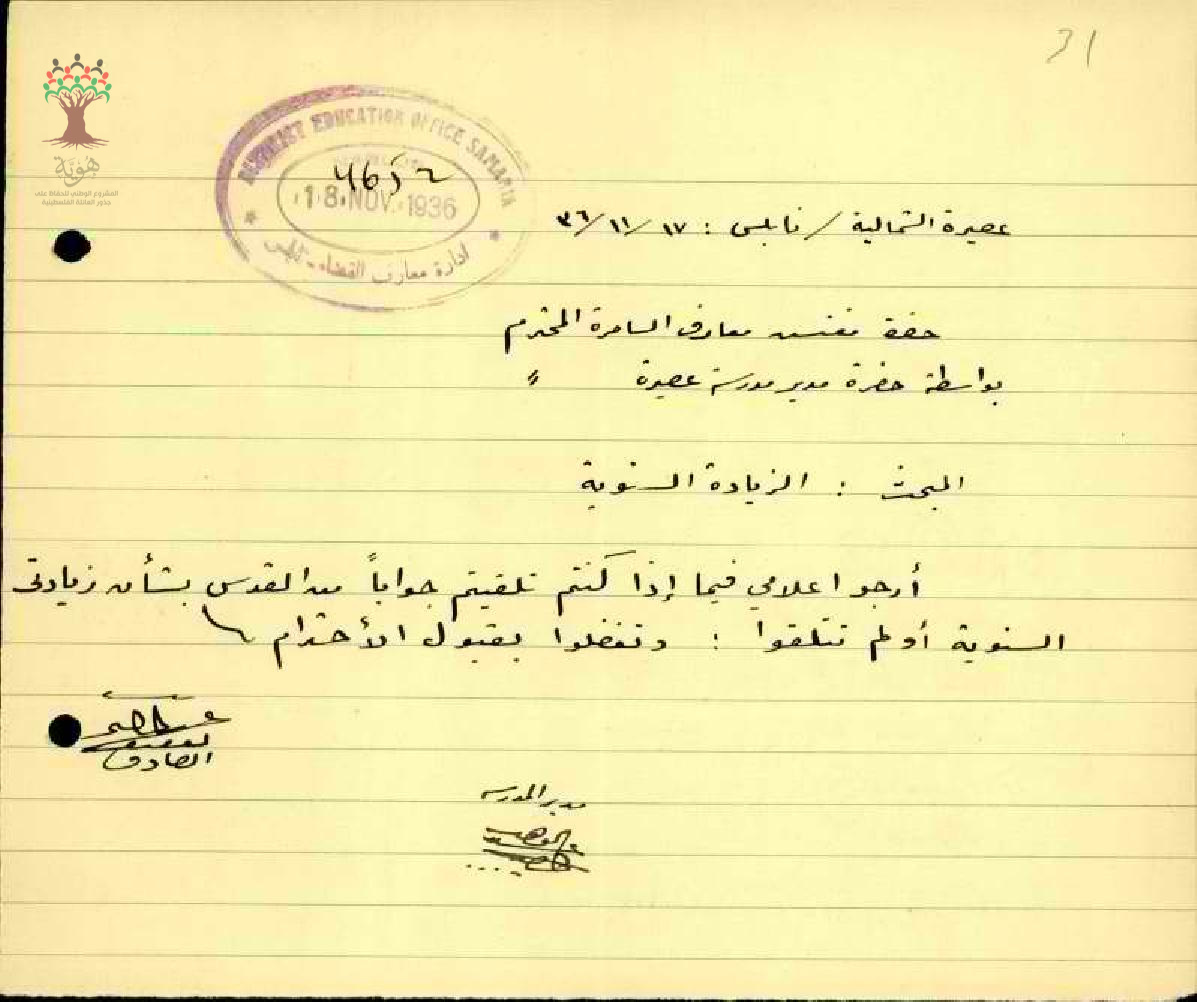 31
هُويّة
المشروع الوطني للحفاظ على
جذور العائلة الفلسطينية
DISTRICT EDUCATION OFFICE SAMARIA
18 NOV. 1936
ادارة معارف القضاء - نابلس
عصيرة الشمالية / نابلس : ١٧ / ١١ / ٣٦
حضرة مفتش معارف السامرة المحترم
بواسطة حضرة مدير مدرسة عصيرة "
المبحث : الزيادة السنوية
أرجو اعلامي فيما إذا كنتم تلقيتم جواباً من القدس بشأن زيادتي
السنوية أو لم تتلقوا : وتفضلوا بقبول الأحترام
الصادق
مدير المدرسة